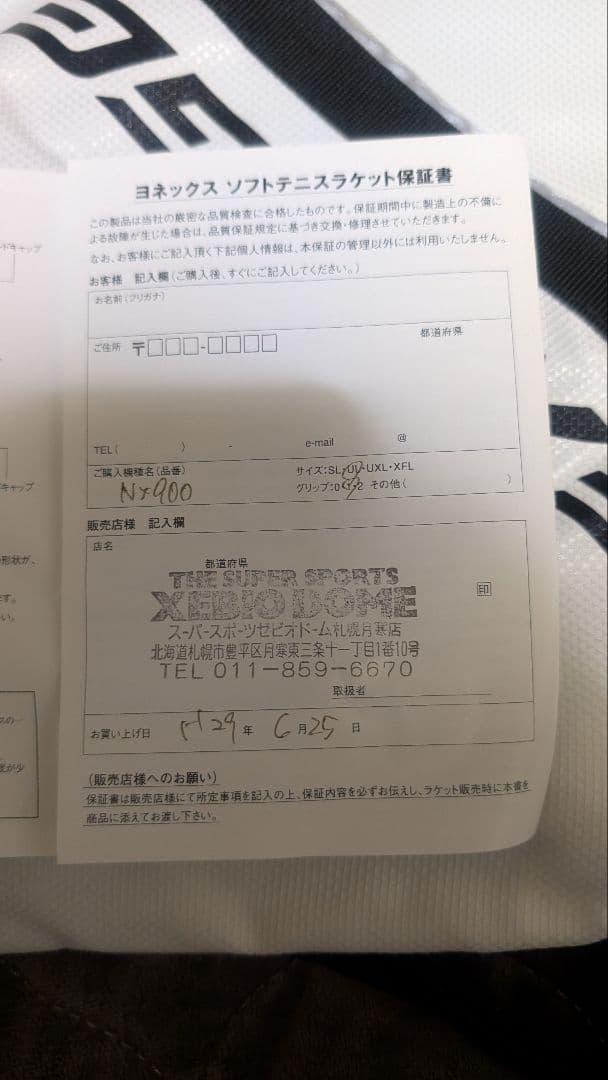 ヨネックス ソフトテニスラケット保証書
この製品は当社の厳密な品質検査に合格したものです。保証期間中に製造上の不備に
よる故障が生じた場合は、品質保証規定に基づき交換・修理させていただきます。
なお、お客様にご記入頂く下記個人情報は、本保証の管理以外には利用いたしません。
お客様 記入欄(ご購入後、すぐにご記入してください。)
お名前(フリガナ)
ご住所 〒□□□-□□□□ 都道府県
TEL( ) - e-mail @
ご購入機種名(品番) サイズ:SL・UL・UXL・XFL
NX900 グリップ:0・1・2 その他( )
販売店様 記入欄
店名
都道府県
THE SUPER SPORTS
XEBIO DOME
印
スーパースポーツゼビオドーム札幌月寒店
北海道札幌市豊平区月寒東三条十一丁目1番10号
TEL 011-859-6670
取扱者
お買い上げ日 H29年 6月25日
(販売店様へのお願い)
保証書は販売店様にて所定事項を記入の上、保証内容を必ずお伝えし、ラケット販売時に本書を
商品に添えてお渡し下さい。
キャップ
形状が、
す。
い。